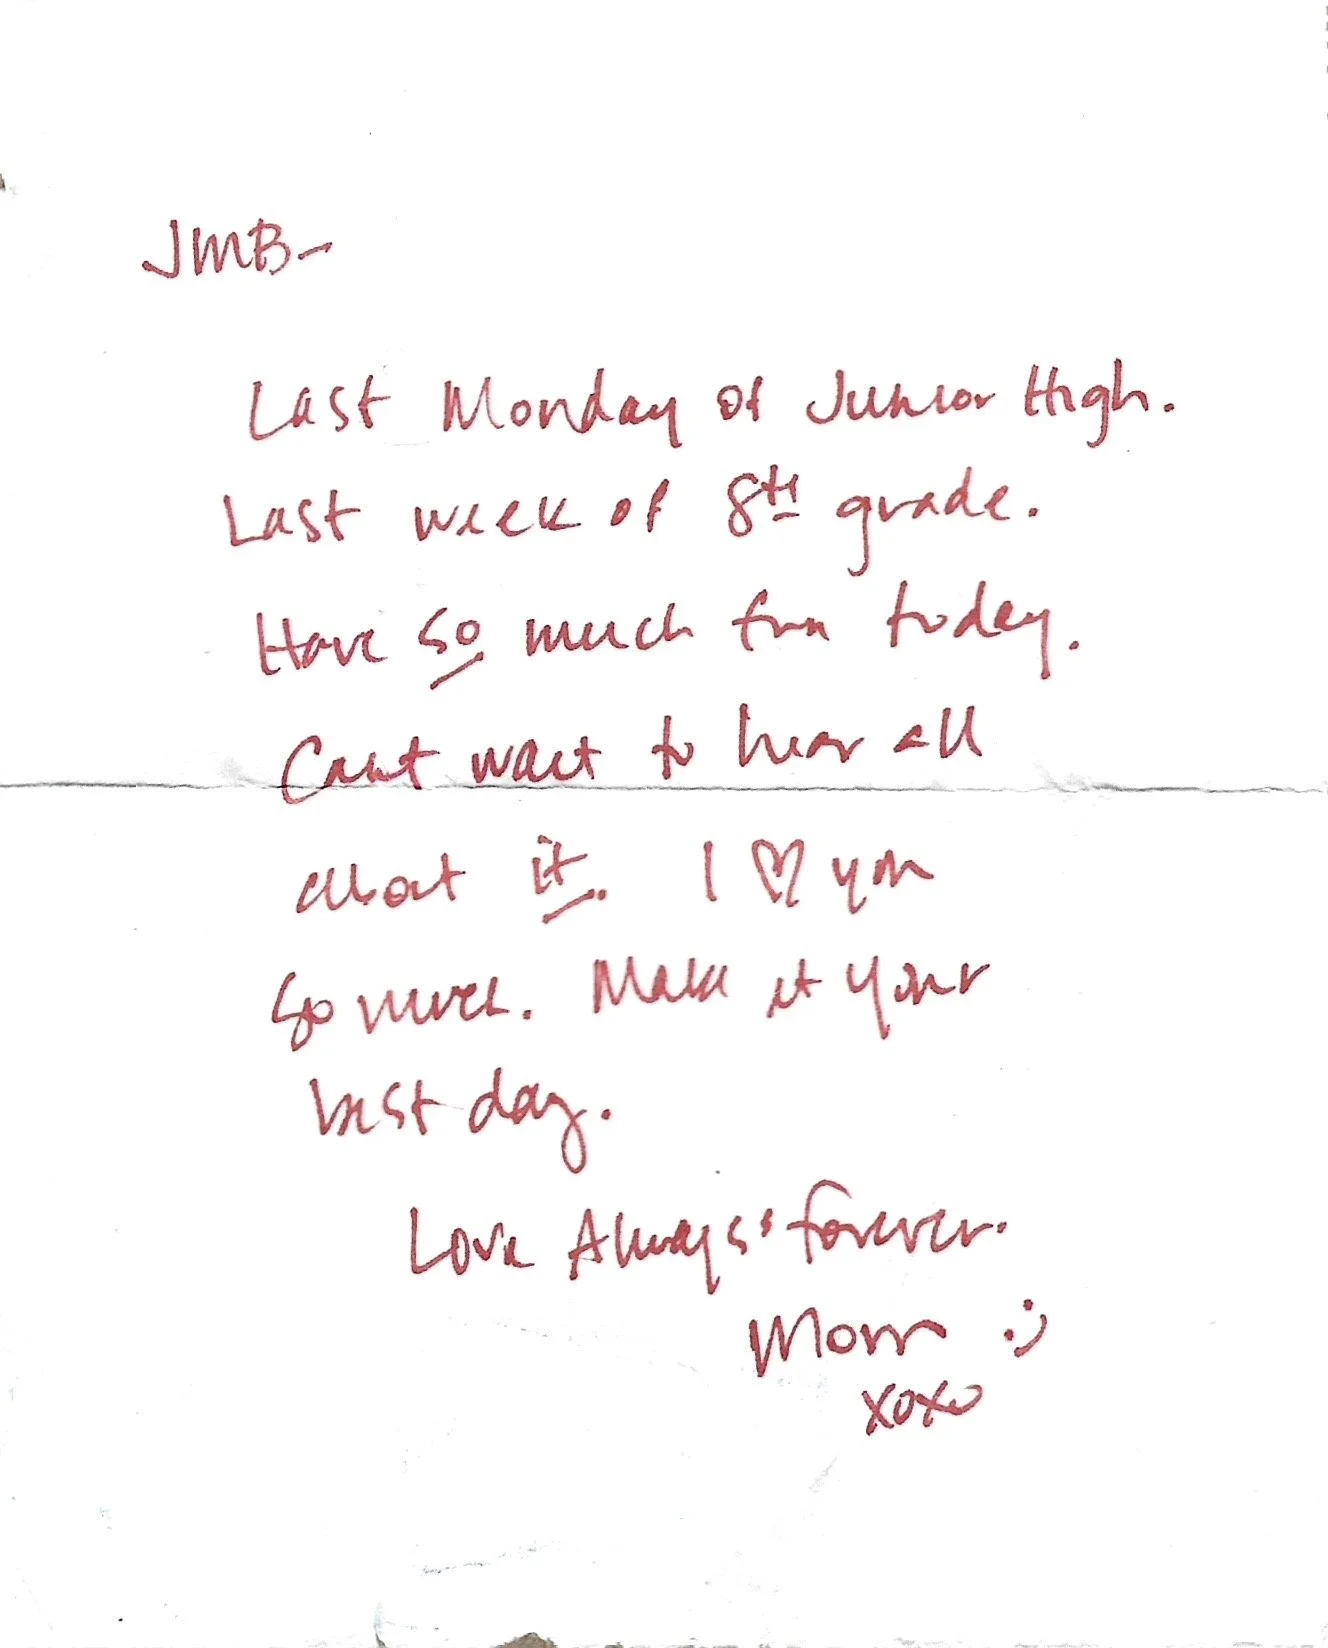 JMB-
Last Monday of Junior High.
Last week of 8th grade.
Have so much fun today.
Cant wait to hear all
about it. I ♡ you
so much. Make it your
best day.
Love Always & forever.
Mom :)
xoxo